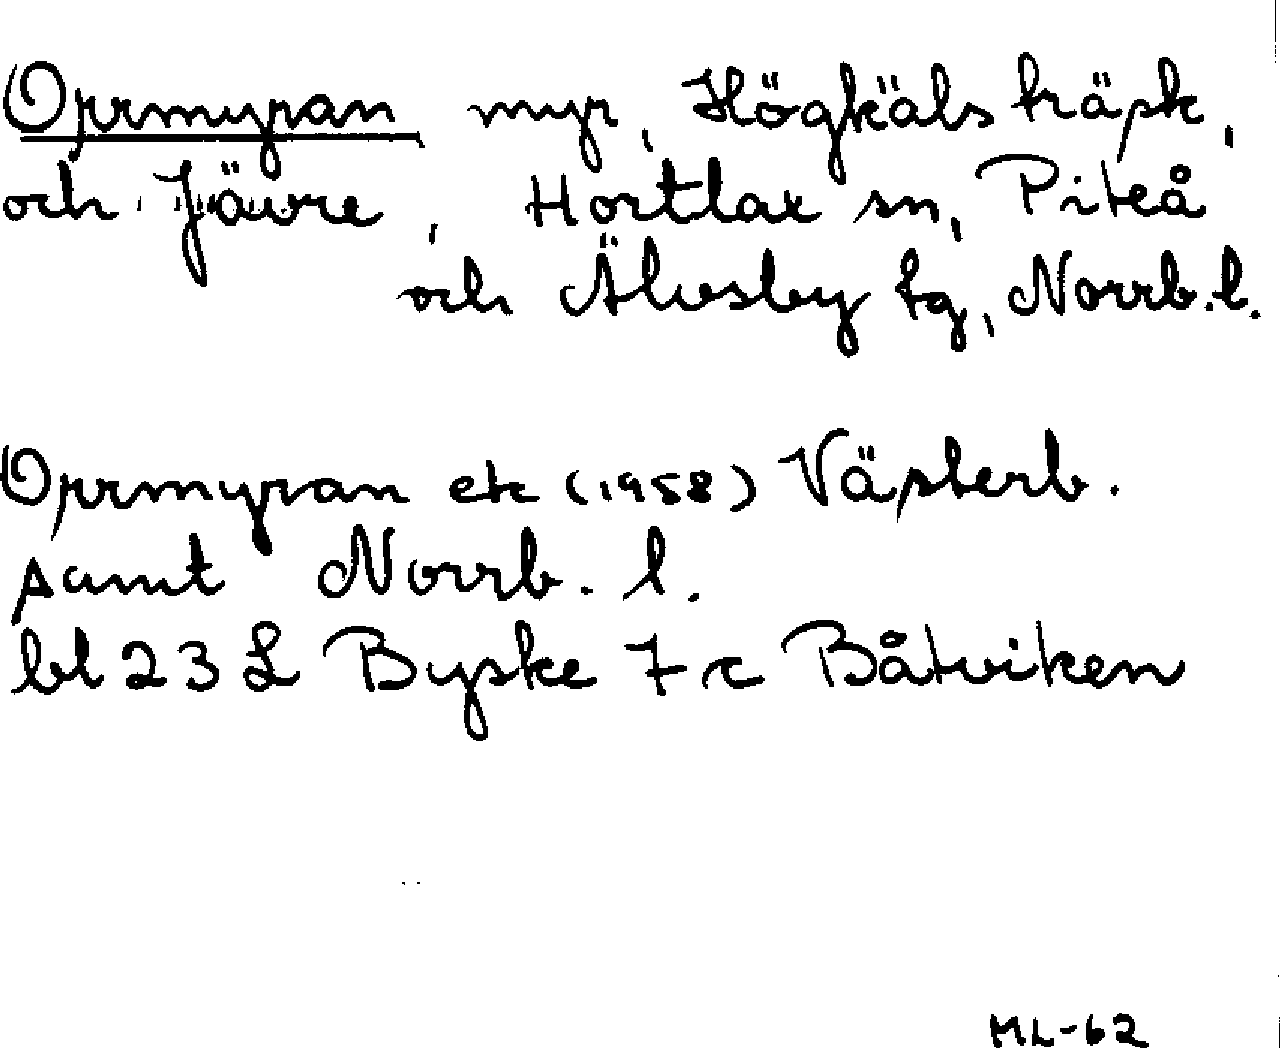 Orrmyran myr, Högkälsträsk,
och Jävre, Hortlax sn, Piteå
och Älvsby tg, Norrb. l.
Orrmyran etc (1958) Västerb.
samt Norrb. l.
bl 23 L Byske 7 c Båtviken
ML-62